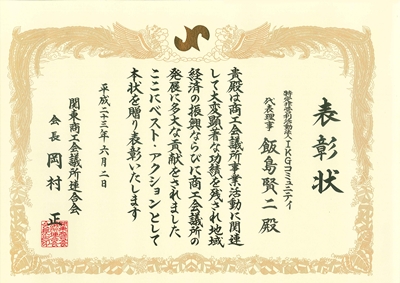 表彰状
特定非営利活動法人IKGコミュニティ
代表理事 飯島賢二殿
貴殿は商工会議所事業活動に関連
して大変顕著な功績を残され地域
経済の振興ならびに商工会議所の
発展に多大な貢献をされました
ここにベスト・アクションとして
本状を贈り表彰いたします
平成二十三年六月二日
関東商工会議所連合会
会長 岡村 正